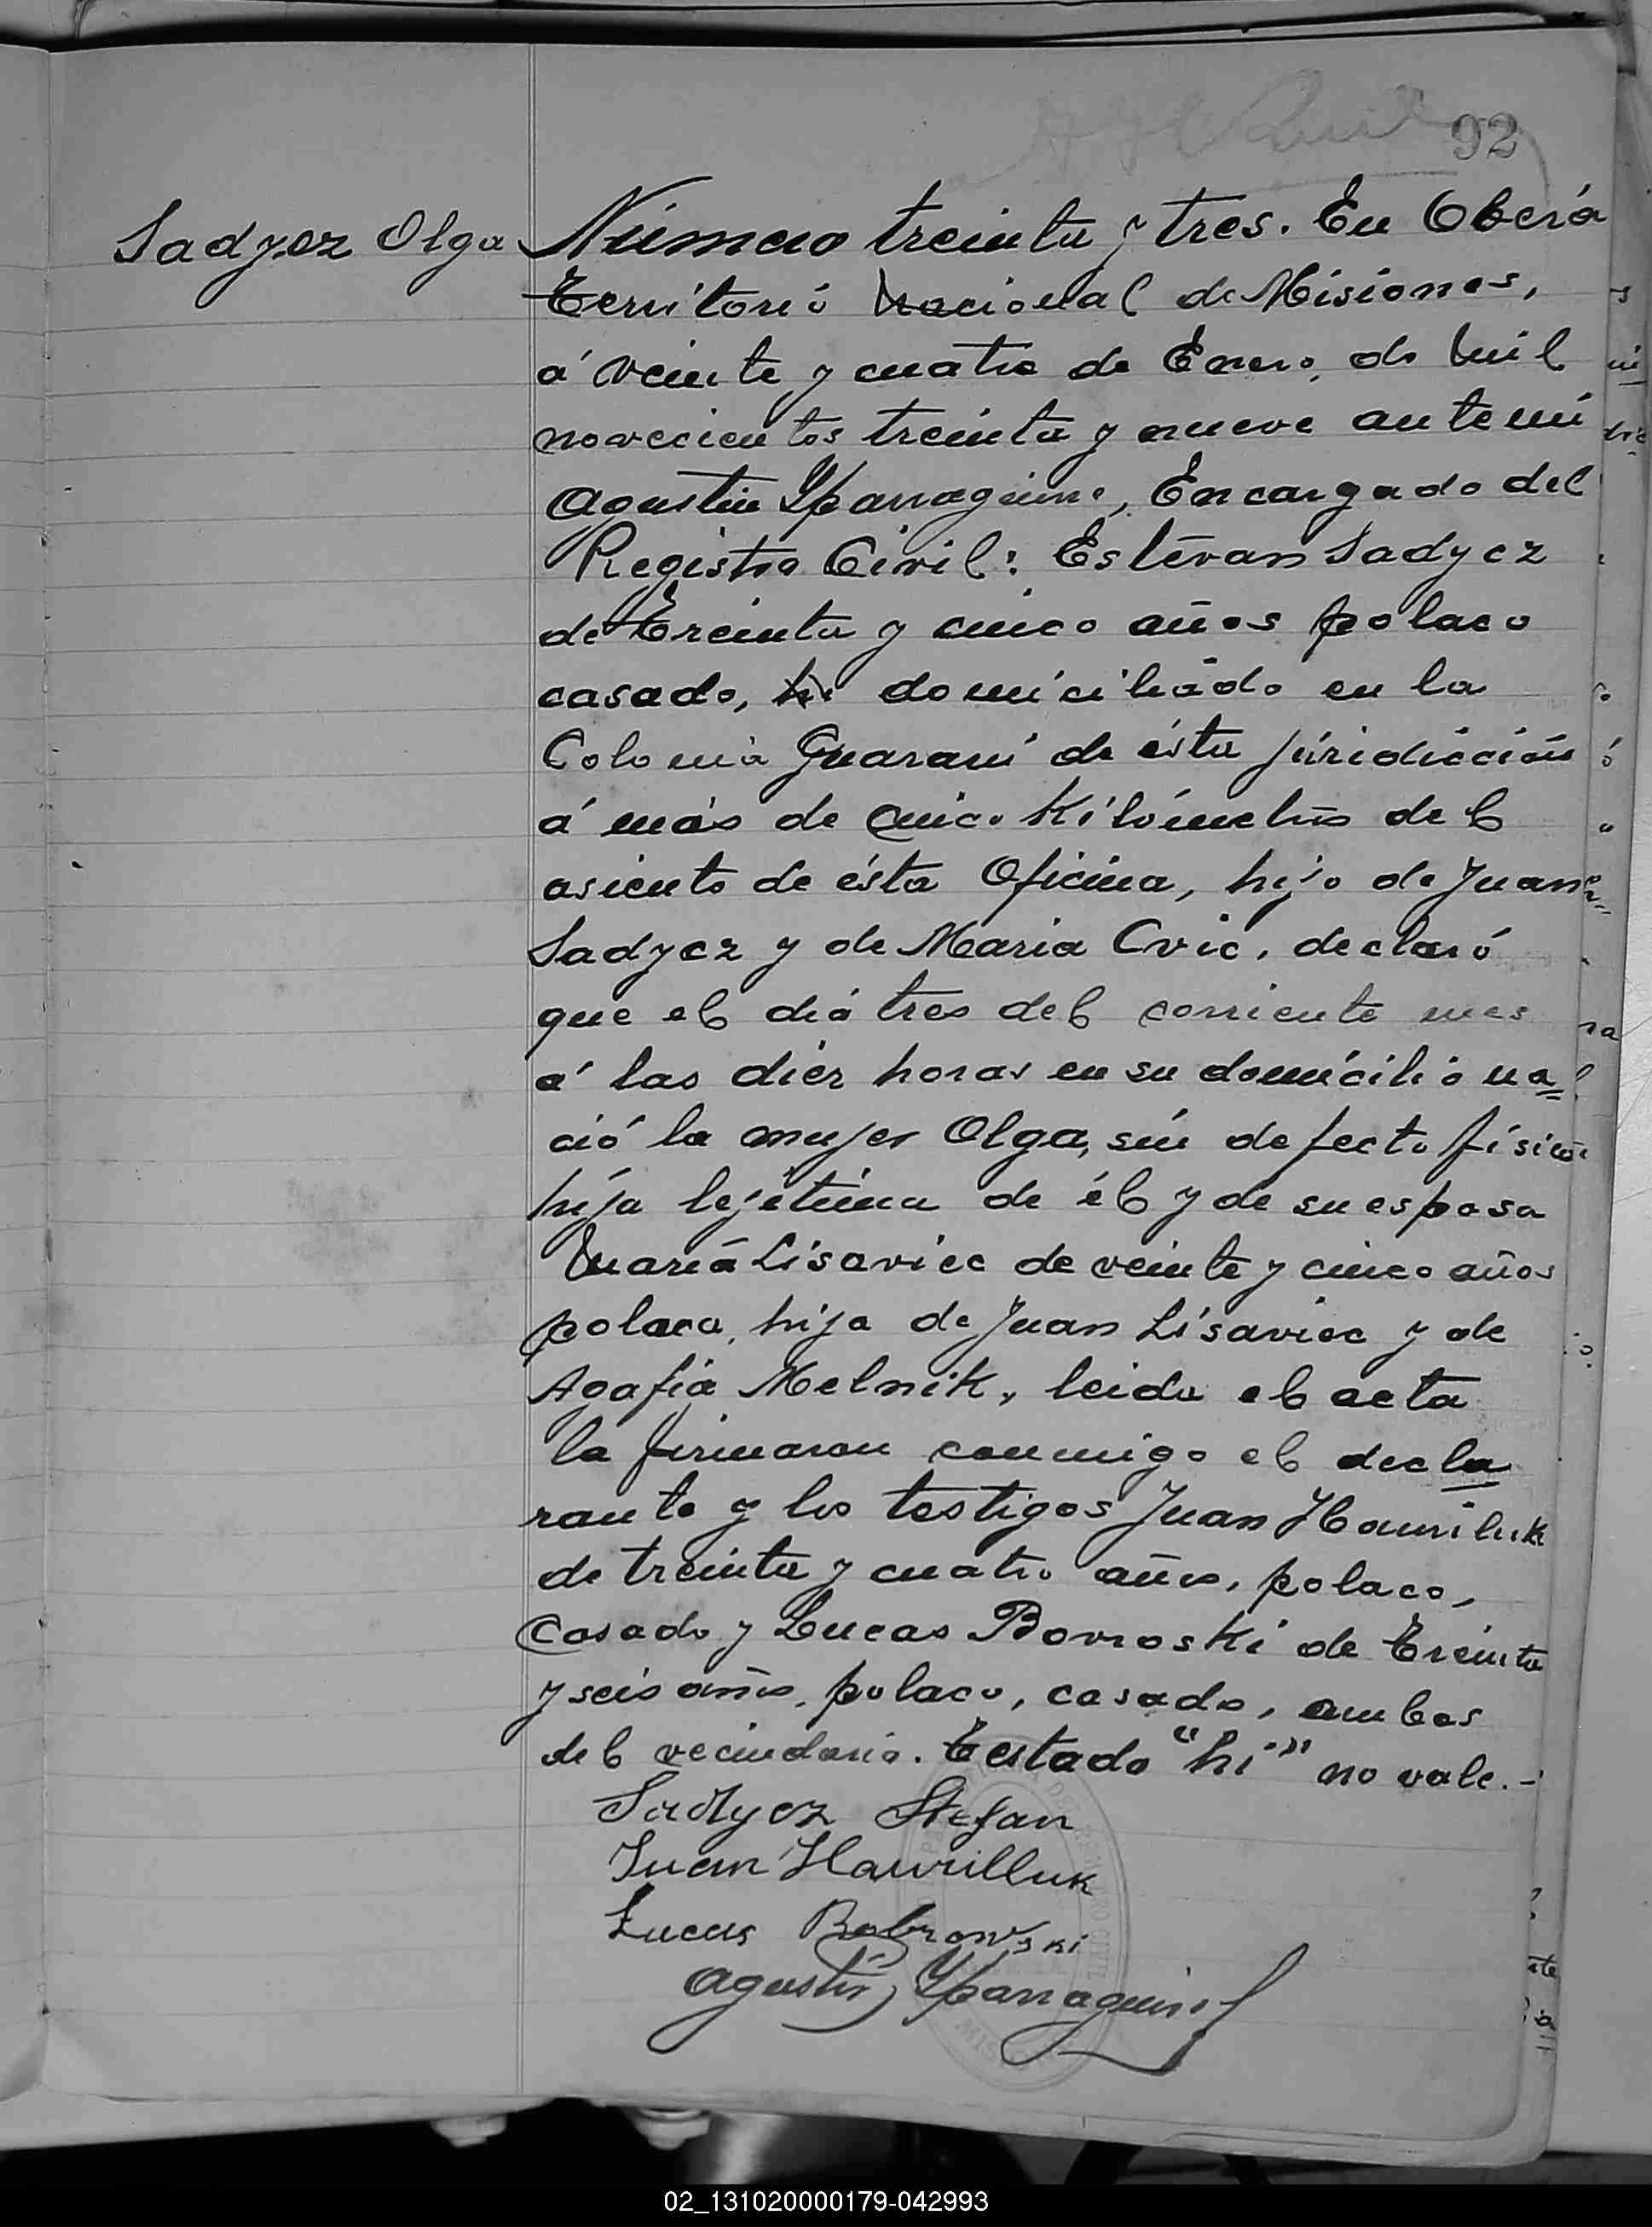 92
Sadycz Olga
Número treinta y tres. En Oberá
Territorio Nacional de Misiones,
á veinte y cuatro de Enero, de mil
novecientos treinta y nueve ante mi
Agustin Yparraguirre, Encargado del
Registro Civil: Estévan Sadycz
de treinta y cinco años polaco
casado, hi domiciliado en la
Colonia Guaraní de ésta juridicción
á más de cinco Kilómetros del
asiento de ésta Oficina, hijo de Juan
Sadycz y de Maria Cvic, declaró
que el diá tres del corriente mes
á las diez horas en su domicilio na=
ció la mujer Olga, sin defecto físico
hija lejítima de él y de su esposa
María Lisaviec de veinte y cinco años
polaca, hija de Juan Lisaviec y de
Agafia Melnik, leida el acta
la firmaron conmigo el decla
rante y los testigos Juan Hawriluk
de treinta y cuatro años, polaco,
casado y Lucas Bovroski de treinta
y seis años, polaco, casado, ambos
del vecindario. Testado "hi" no vale.-
Sadycz Stefan
Juan Hawrilluk
Lucas Bobrowski
Agustín Yparraguirre
02_131020000179-042993